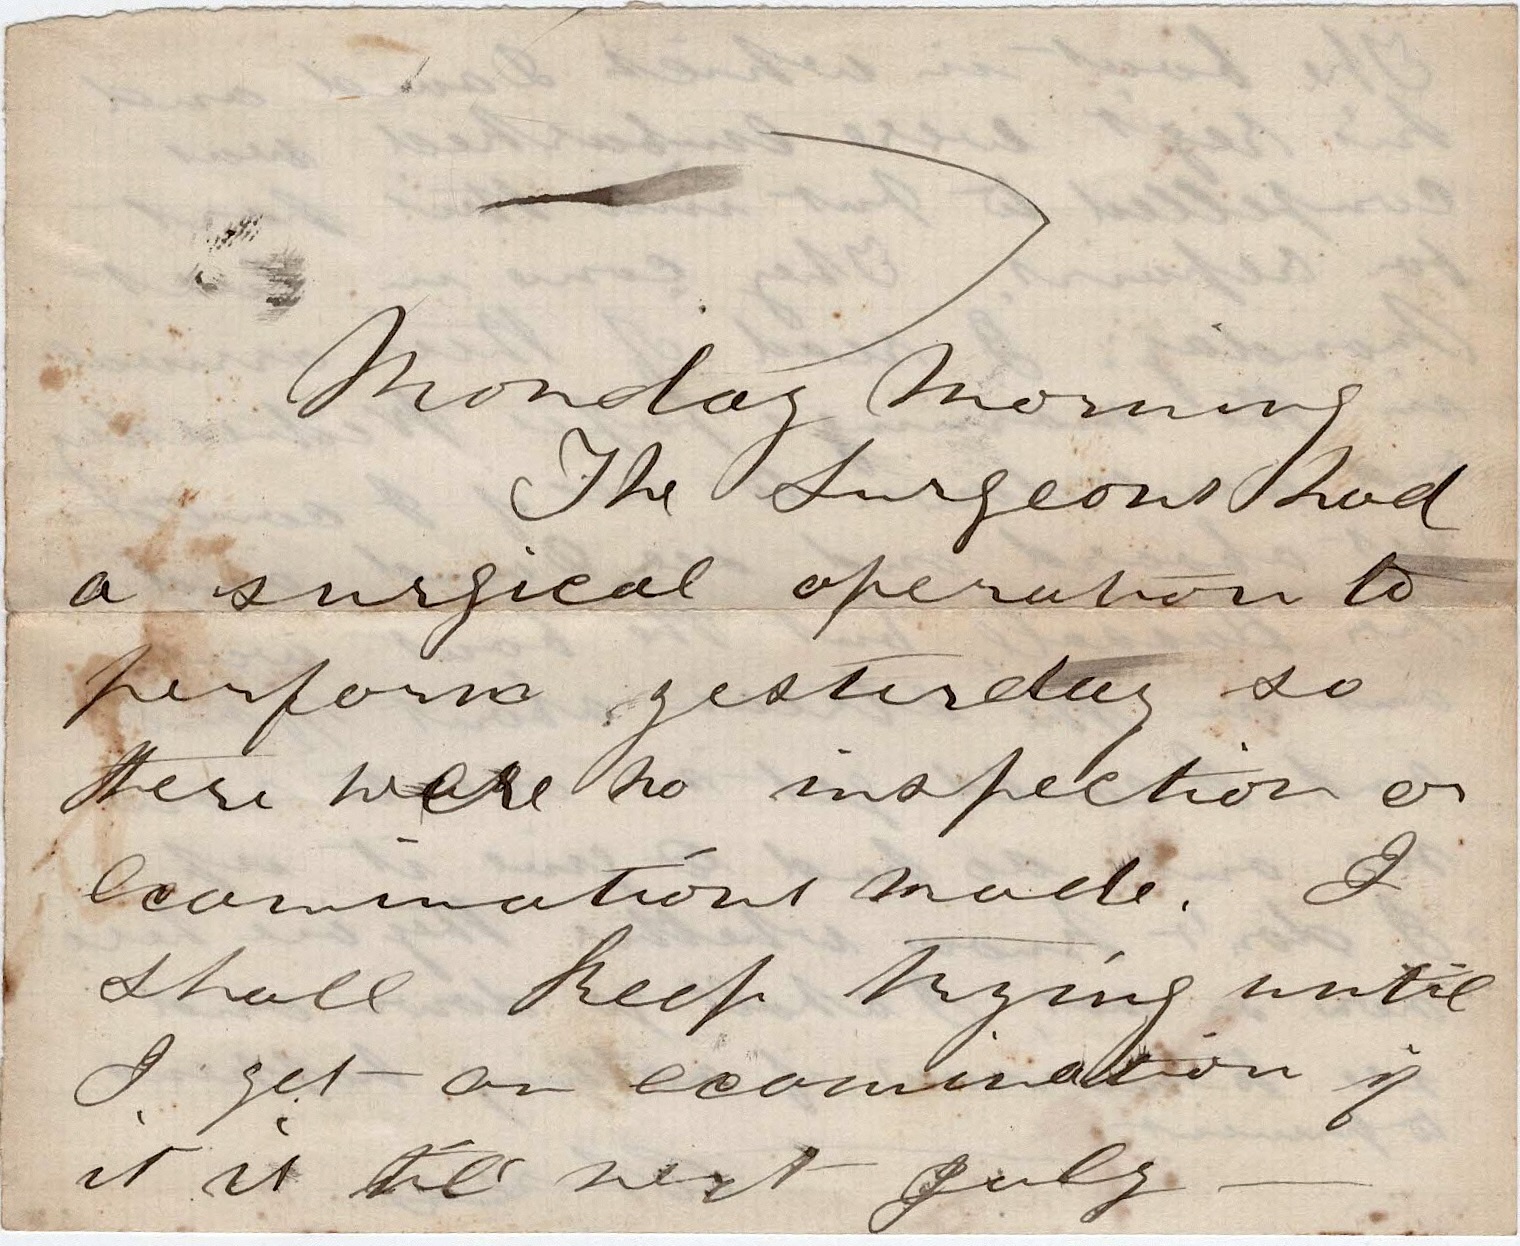 Monday Morning
The Surgeons had
a surgical operation to
perform yesterday so
there were no inspection or
examinations made. I
shall keep trying until
I get an examination if
it is till next July —